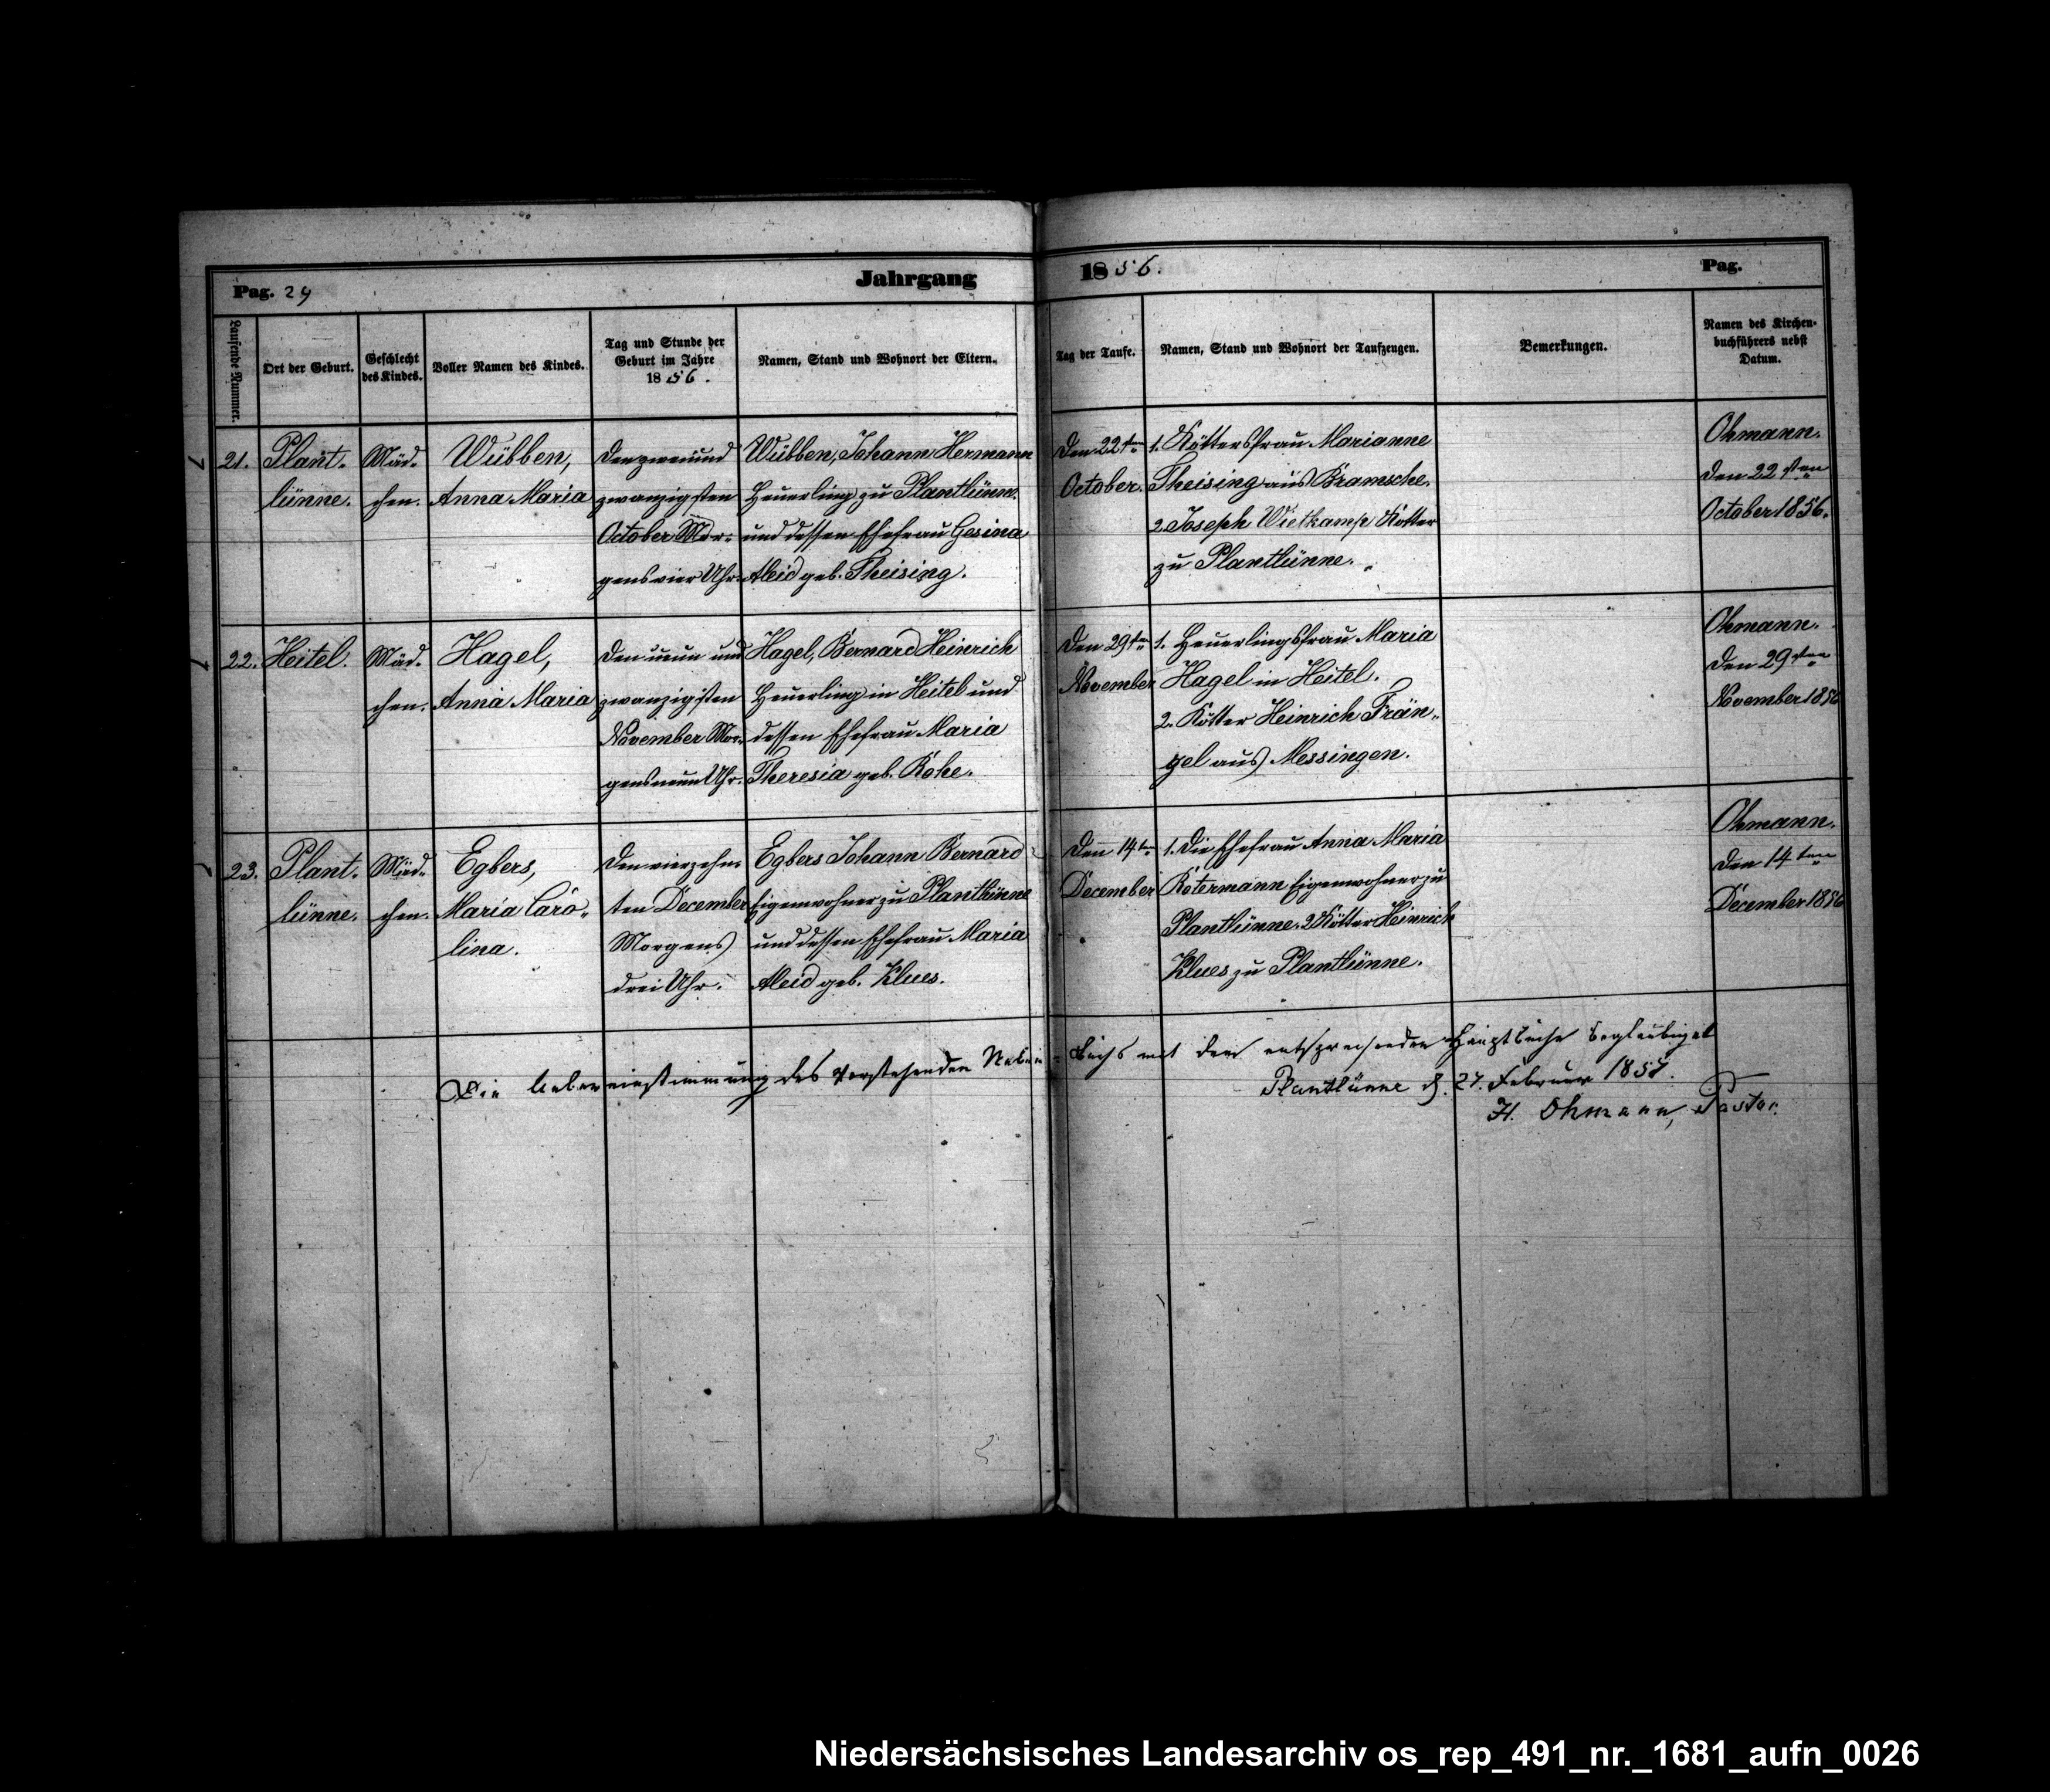 Pag. 24
Jahrgang
1856.
Pag.
Laufende Nummer.
Ort der Geburt.
Geschlecht
des Kindes.
Voller Namen des Kindes.
Tag und Stunde der
Geburt im Jahre
1856.
Namen, Stand und Wohnort der Eltern.
Tag der Taufe.
Namen, Stand und Wohnort der Taufzeugen.
Bemerkungen.
Namen des Kirchen-
buchführers nebst
Datum.
21.
Plant-
lünne.
Mäd-
chen.
Wübben,
Anna Maria
Den zwei und
zwanzigsten
October Mor-
gens vier Uhr.
Wübben, Johann Hermann
Heuerling zu Plantlünne
und dessen Ehefrau Gesina
Aleid geb. Theising.
Den 22sten
October.
1. Kötters frau Marianne
Theising aus Bramsche.
2. Joseph Wietkamp Kötter
zu Plantlünne.
Ohmann.
den 22sten
October 1856.
22.
Heitel.
Mäd-
chen.
Hagel,
Anna Maria
Den neun und
zwanzigsten
November Mor-
gens neun Uhr.
Hagel, Bernard Heinrich
Heuerling in Heitel und
dessen Ehefrau Maria
Theresia geb. Kohe.
Den 29sten
November
1. Heuerlingsfrau Maria
Hagel in Heitel.
2. Kötter Heinrich Frän-
gel aus Messingen.
Ohmann.
den 29sten
November 1856
23.
Plant-
lünne.
Mäd-
chen.
Egbers,
Maria Caro-
lina.
Den vierzehn-
ten December
Morgens
drei Uhr.
Egbers Johann Bernard
Eigenwohner zu Plantlünne
und dessen Ehefrau Maria
Aleid geb. Klues.
Den 14ten
December
1. Die Ehefrau Anna Maria
Kötermann Eigenwohner zu
Plantlünne. 2 Kötter Heinrich
Klues zu Plantlünne.
Ohmann.
den 14ten
December 1856
Die Uebereinstimmung des vorstehenden Neben-
buchs mit dem entsprechenden Hauptbuche beglaubiget
Plantlünne d. 27. Februar 1857.
H. Ohmann, Pastor.
Niedersächsisches Landesarchiv os_rep_491_nr._1681_aufn_0026